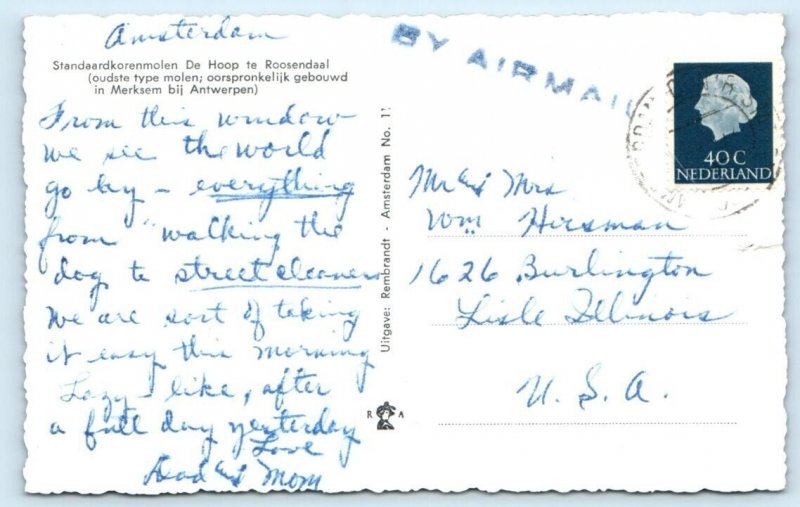 Amsterdam
Standaardkorenmolen De Hoop te Roosendaal
(oudste type molen; oorspronkelijk gebouwd
in Merksem bij Antwerpen)
From this window
we see the world
go by - everything
from "walking the
dog to streetcleaners
We are sort of taking
it easy this morning
Lazy-like, after
a full day yesterday
Love
Dad and Mom
Uitgave: Rembrandt - Amsterdam No. 11
R A
BY AIRMAIL
40 C
NEDERLAND
Mr and Mrs
Wm Hirsman
1626 Burlington
Lisle Illinois
U. S. A.